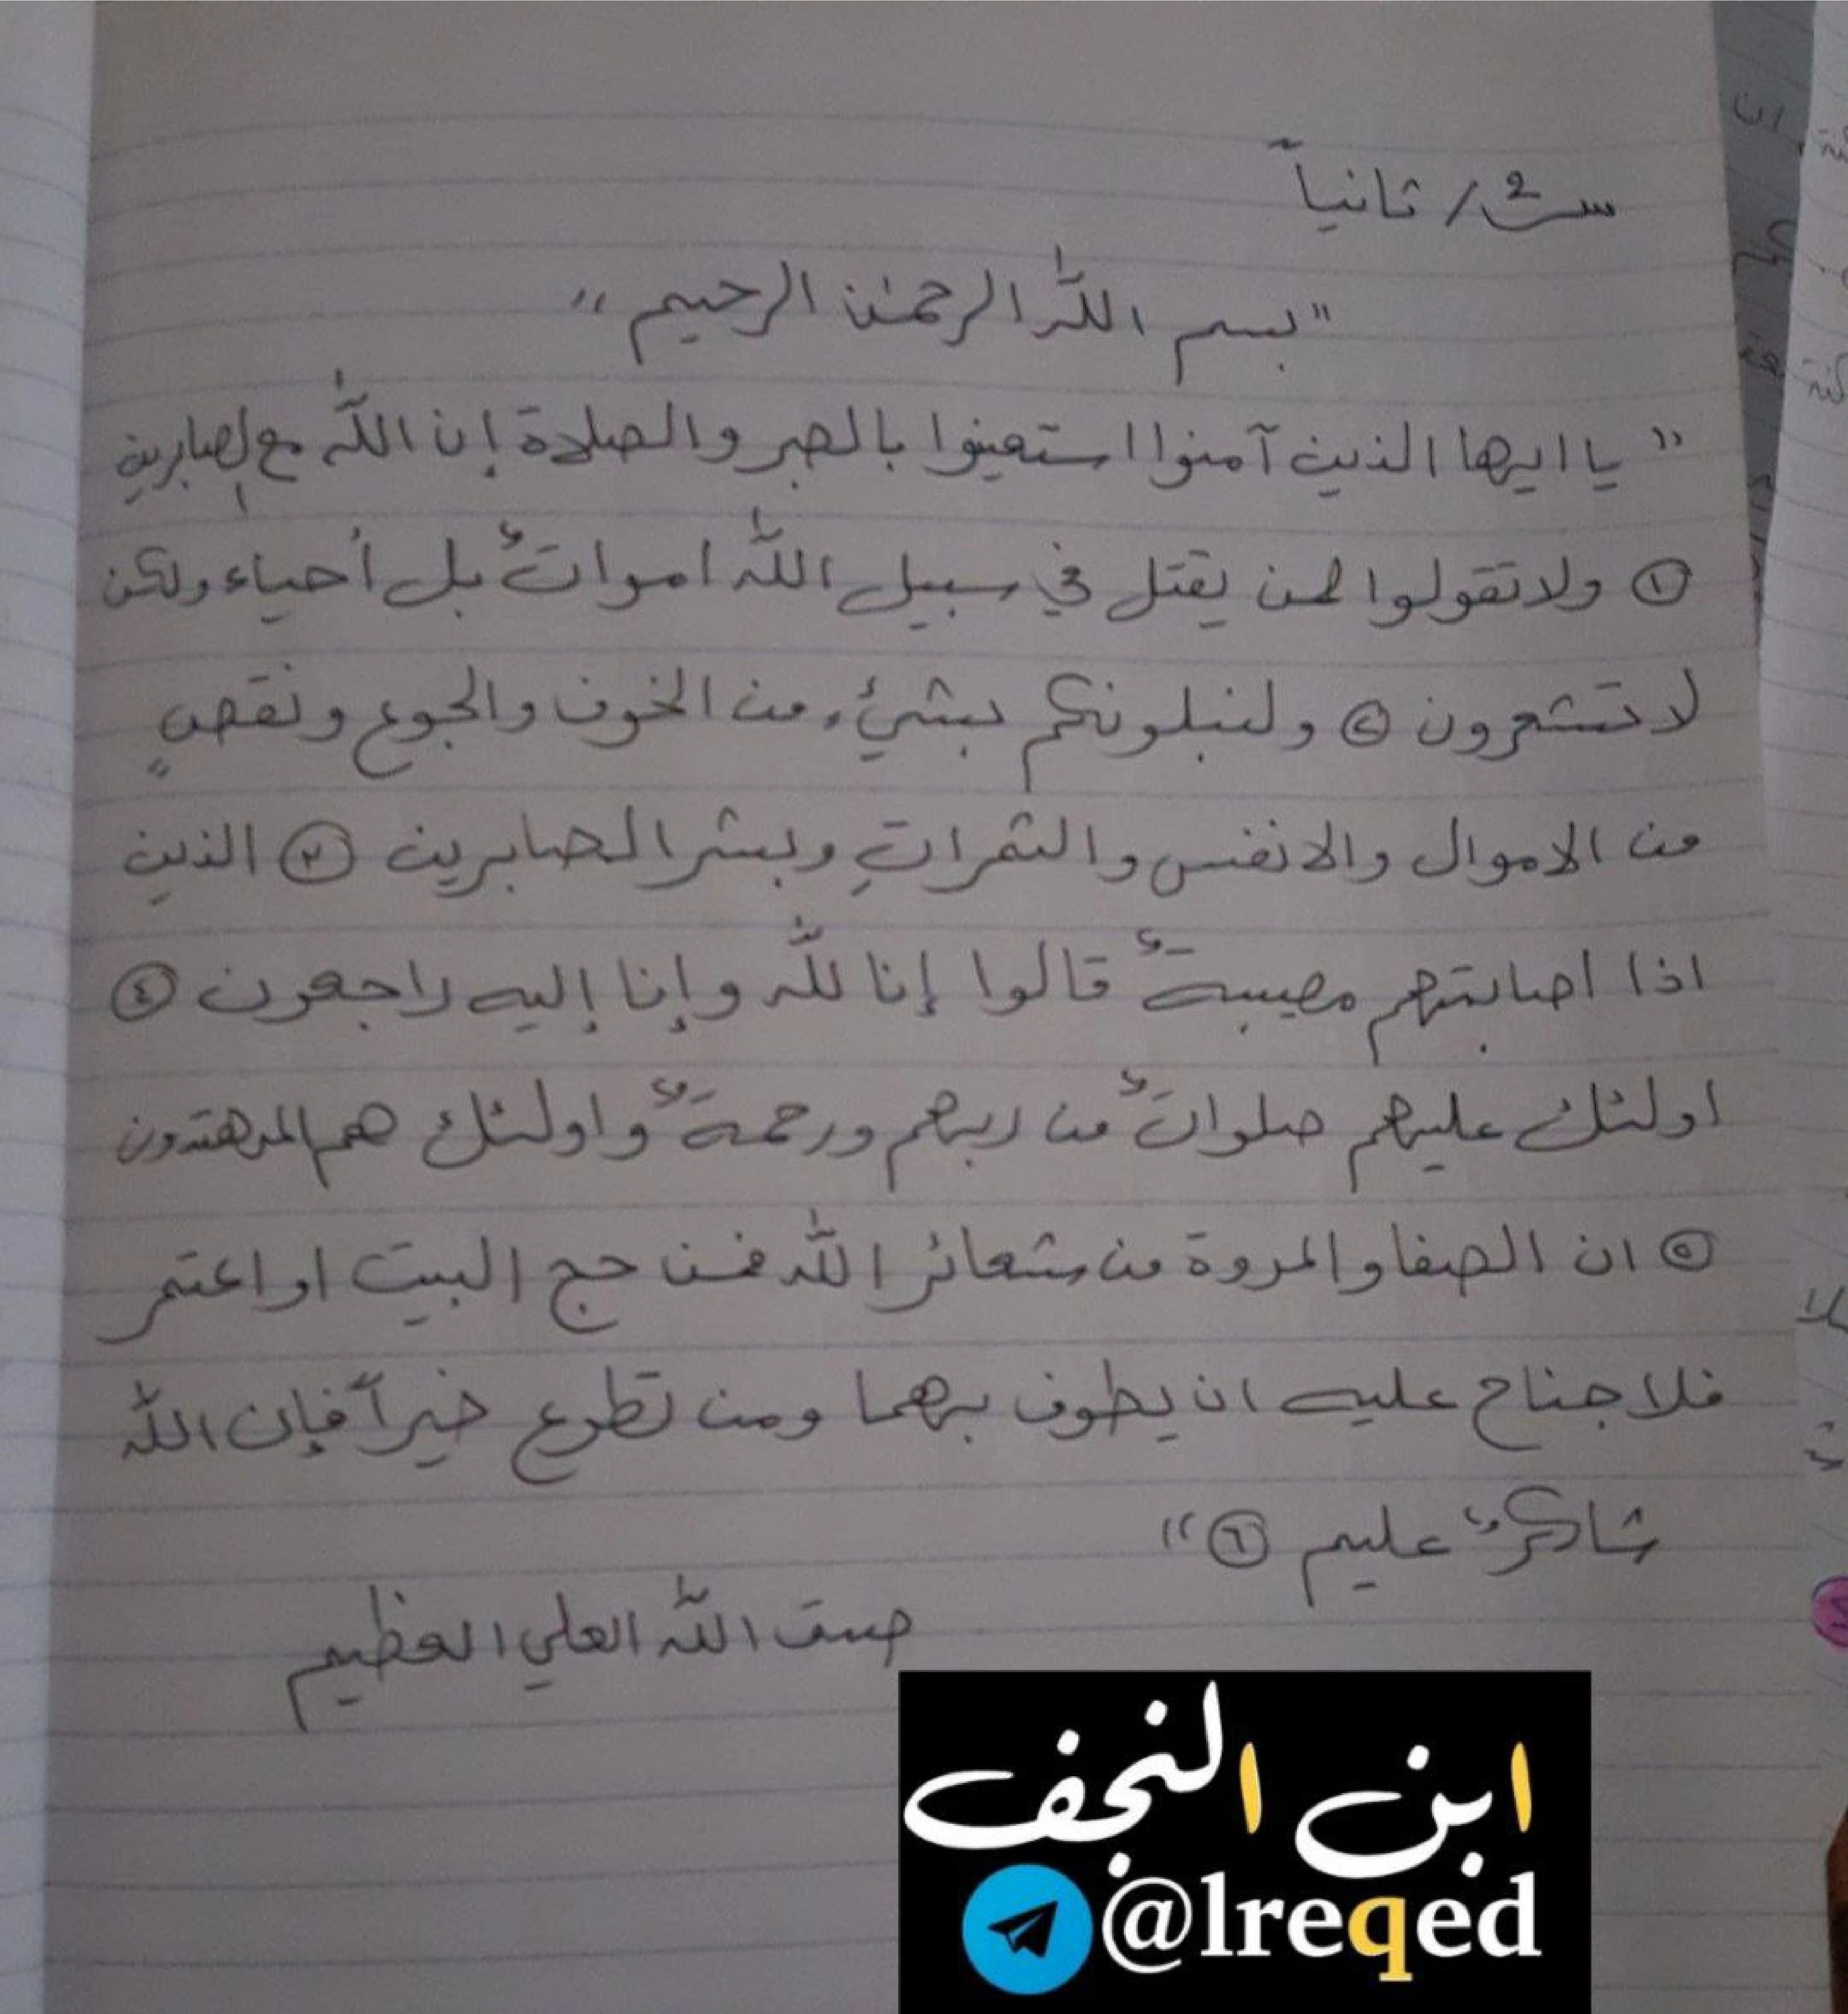 س2/ ثانياً
"بسم الله الرحمٰن الرحيم"
"يا ايها الذين آمنوا استعينوا بالصبر والصلاة إن الله مع الصابرين
(١) ولا تقولوا لمن يقتل في سبيل الله امواتٌ بل أحياء ولكن
لا تشعرون (٢) ولنبلونكم بشيْء من الخوف والجوع ونقصٍ
من الاموال والانفس والثمراتِ وبشر الصابرين (٣) الذين
اذا اصابتهم مصيبةٌ قالوا إنا لله وإنا إليه راجعون (٤)
اولئك عليهم صلواتٌ من ربهم ورحمةٌ واولئك هم المهتدون
(٥) ان الصفا والمروة من شعائر الله فمن حج البيت او اعتمر
فلا جناح عليه ان يطوف بهما ومن تطوع خيراً فإن الله
شاكرٌ عليم (٦)"
صدق الله العلي العظيم
ابن النجف
@lreqed